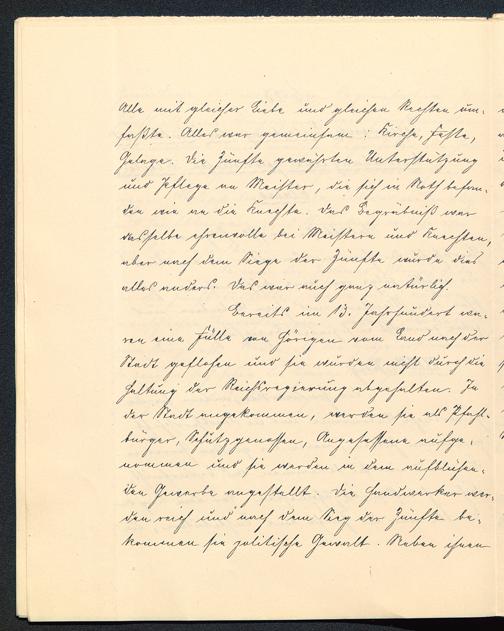 Alle mit gleicher Liebe und gleichen Rechten um-
faßte. Alles war gemeinsam: Kirche, Feste,
Gelage. Die Zünfte gewährten Unterstützung
und Pflege an Meister, die sich in Noth befan-
den wie an die Knechte. Das Begräbniß war
dasselbe ehrenvolle bei Meistern und Knechten,
aber nach dem Siege der Zünfte wurde dies
alles anders. Das war auch ganz natürlich
Bereits im 13. Jahrhundert wa-
ren eine Fülle von Hörigen vom Land nach der
Stadt geflohen und sie wurden nicht durch die
Haltung der Reichsregierung abgehalten. In
der Stadt angekommen, werden sie als Pfahl-
bürger, Schutzgenossen, Angesessene aufge-
nommen und sie werden in dem aufblühen-
den Gewerbe angestellt. Die Handwerker wer-
den reich und nach dem Sieg der Zünfte be-
kommen sie politische Gewalt. Neben ihnen